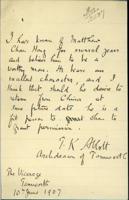 I have known Matthew
Chan Hong for several years
and believe him to be a
worthy man. He bears an
excellent character, and I
think that should he desire to
return from China at
some future date he is a
fit person to grant
permission.
T. K. Abbott
Archdeacon of Tamworth
The Vicarage
Tamworth
10th June 1907